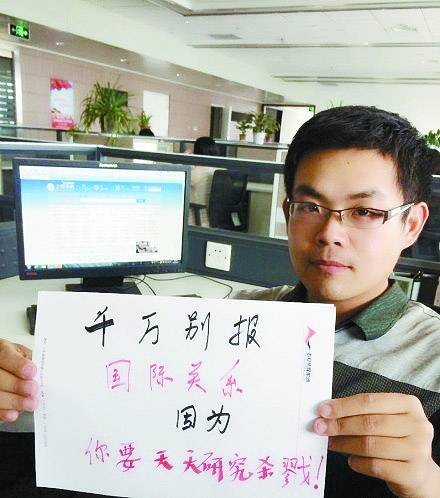 千万别报
国际关系
因为
你要天天研究杀戮!